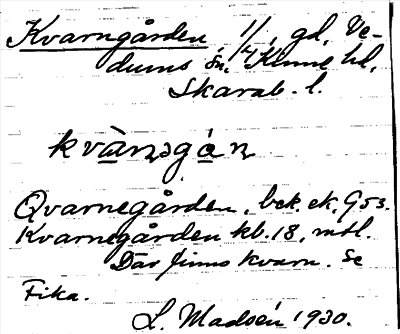 Kvarngården 1/1, gd, Ve-
dums sn, Kinne hd,
Skarab. l.
kvàrngá̱n
Qvarnegården, bek. ek. G 53.
Kvarnegården kb. 18, mtl.
Där finns kvarn. Se
Fika.
L. Madsén 1930.